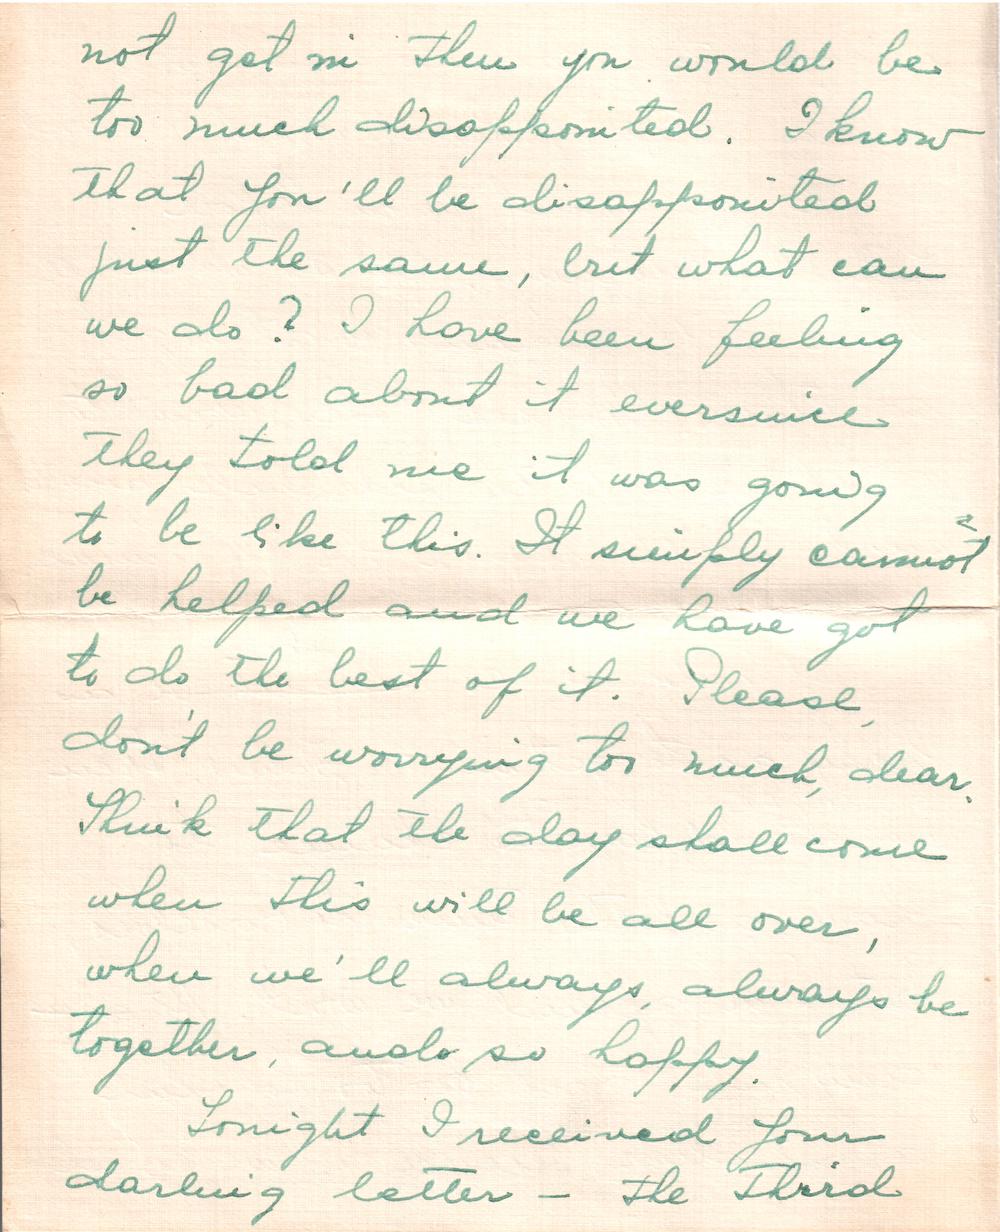 not get in then you would be
too much disappointed. I know
that you'll be disappointed
just the same, but what can
we do? I have been feeling
so bad about it eversince
they told me it was going
to be like this. It simply cannot
be helped and we have got
to do the best of it. Please,
don't be worrying too much, dear.
Think that the day shall come
when this will be all over,
when we'll always, always be
together, and so happy.
Tonight I received your
darling letter - the Third